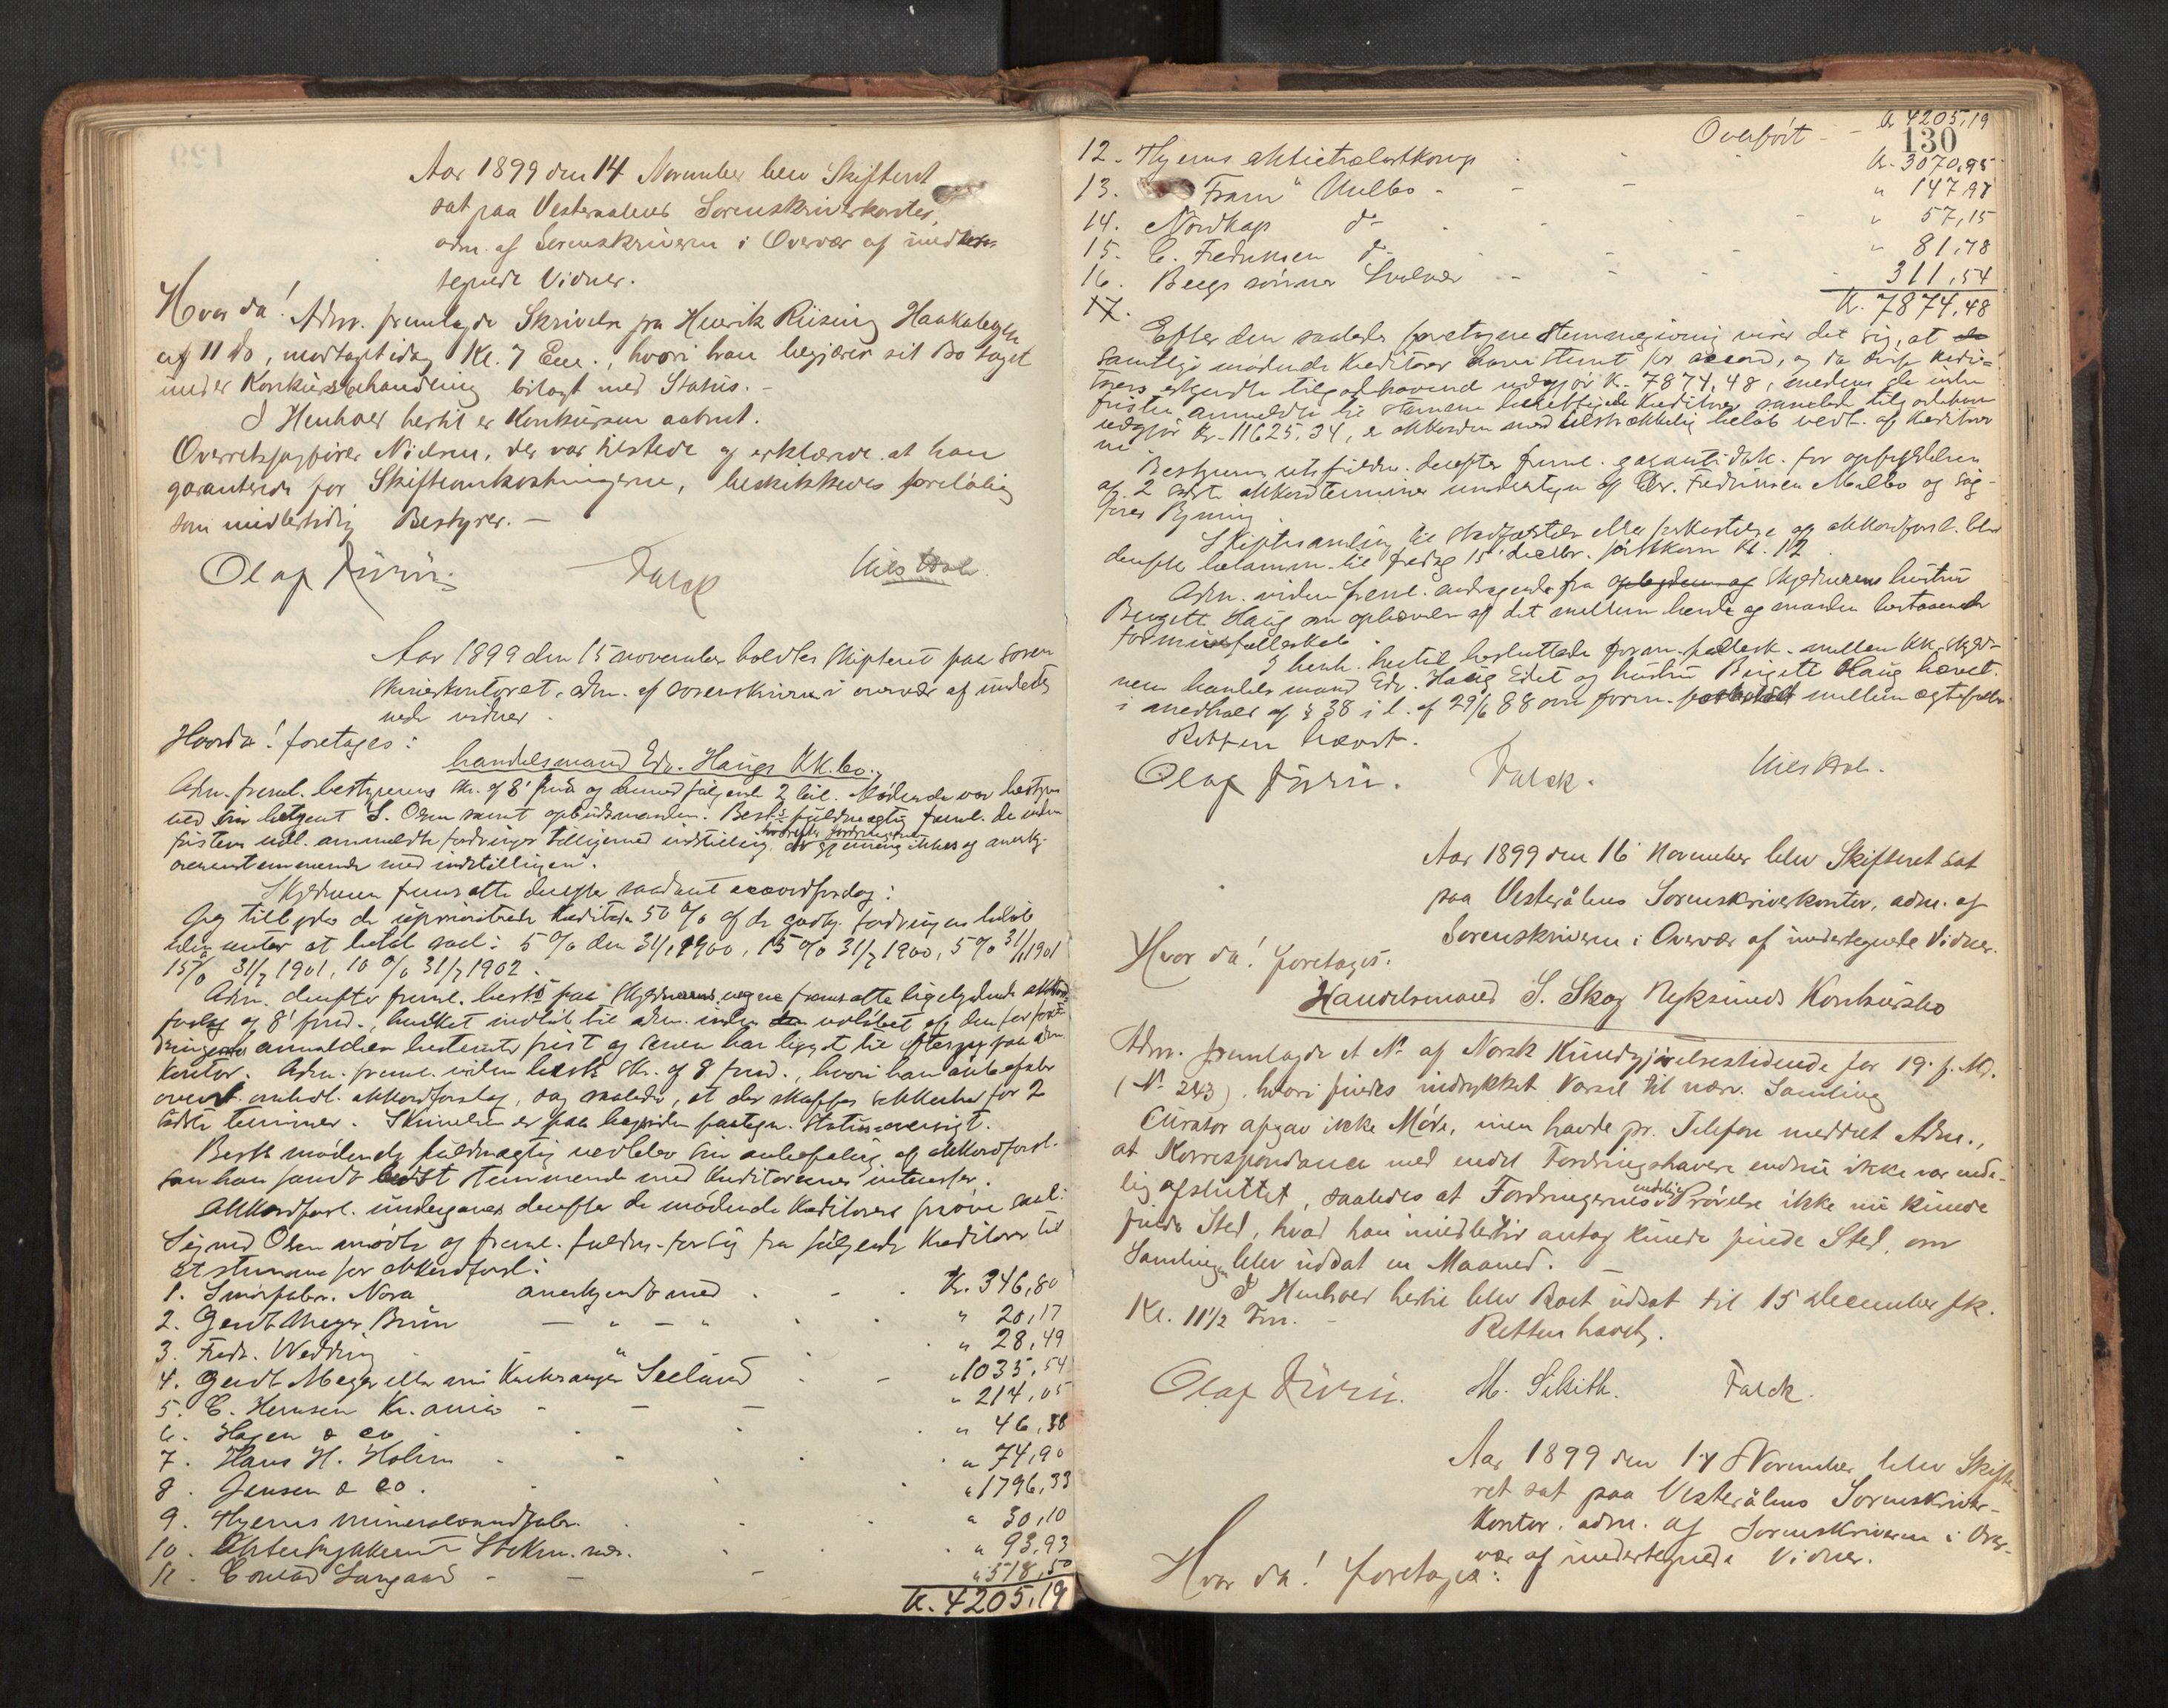 Aar 1899 den 14 November blev Skifteret
sat paa Vesteraalens Sorenskriverkontor,
adm. af Sorenskriveren i Overvær af under-
tegnede Vidner.
Hvor da! Adm. fremlagde Skrivelse fra Henrik Riising Haakabergen
af 11 ds, modtaget idag Kl. 7 Em., hvori han begjærer sit Bo taget
under Konkursbehandling bilagt med Status. -
I Henhold hertil er Konkursen aabnet.
Overretssagfører Nielsen, der var tilstede og erklærede at han
garanterede for Skifteomkostningerne, beskikkedes foreløbig
som midlertidig Bestyrer. -
Olaf Falck Nils
Aar 1899 den 15 november holdtes skifteret paa Soren
skriverkontoret, adm. af sorenskriveren i overvær af underteg
nede vidner.
Hvorda! foretages:
handelsmand Edv. Haugs KK.bo.
Adm. freml. bestyrerens skr. af 8' ds og dermed følgende 2 bil. Mødende var bestyre
ved sin betjent S. Olsen samt opbudsmanden. Best's fuldmægtig freml. de inden
fristens udl. anmeldte fordringer tilligemed indstilling
hvorefter fordringerne
overensstemmende med indstillingen.
Skyldneren fremsatte derefter saadant accordforslag:
Jeg tilbyder de uprioriterede Kreditorer 50 % af de godkj. fordringers beløb
uden renter at betale saal: 5 % den 31/1 1900, 15 % 31/7 1900, 5 % 31/1 1901
15 % 31/7 1901, 10 % 31/7 1902.
Adm. derefter freml. best's paa skyldnerens vegne fremsatte ligelydende akkord
forslag af 8' , hvilket indløb til adm. inden udløbet af den for ford
ringernes anmeldelse bestemte frist og senere har ligget til eftersyn paa adm.
kontor. Adm. freml. videre best's skr. af 8 , hvori han anbefaler
ovenn. omhdl. akkordforslag, dog saaledes, at der skaffes sikkerhed for 2
sidste terminer. Skrivelsen er paa bagsiden paategn. Statusoversigt.
Best's mødende fuldmægtig vedblev sin anbefaling af akkordforsl.
som han fandt bedst stemmende med Kreditorernes interesser.
Akkordforsl. undergaves derefter de mødende Kreditorers prøve saal:
Sigurd Olsen mødte og freml. fuldm. for sig fra følgende Kreditorer til
at stemme for akkordforsl:
1. Smørfabr. Nora anerkjendt med - Kr. 346,80
2. Gerdt Meyer Bruun — " — " " 20,17
3. Fredr. Wedding " 28,49
4. Gerdt Meyer eller Seeland - " 1035,54
5. C. Hermsen Kr.ania - " 214,05
6. Hagen & co " 46,38
7. Hans H. Holm " 74,90
8. Jensen & co. " 1796,33
9. Hjerns mineralvandfabr. " 30,10
10. Stokm. næs. " 93,93
11. Conrad Langaard - " 518,50
Kr. 4205,19
130
Overført - Kr 4205,19
12. Hjerns aktietrælastkomp Kr. 3070,95
13. "Fram" Melbo - " 147,97
14. Nordkap d- " 57,15
15. C. Fredriksen d- " 81,78
16. Bergs sønner Svolvær - 311,54
17. Kr. 7874,48
Efter den saaledes foretagne stemmegivning viser det sig, at de
samtlige mødende Kreditorer have stemt for accord, og da disse Kredi-
torers erkjendte tilgodehavende udgjør Kr. 7874,48, medens de inden
fristen anmeldte til stemme berettigede Kreditorers samlede tilgodehav
udgjør Kr. 11625.34, er akkorden med tilstrækkelig beløb vedt. af Kreditor
ne.
Bestyrerens fuldm. derefter freml. garantidok. for opfyldelsen
af 2 sidste akkordterminer undertegn. af Chr. Fredriksen Melbo og Sag-
fører Rynning.
Skiftesamling til stadfæstelse eller forkastelse af akkordforsl. blev
derefter beramm. til fredag 15' decbr. førstkom. Kl. 12
Adm. videre freml. andragende fra skyldnerens hustru
Birgitte Haug om ophævelse af det mellem hende og manden bestaaende
formuesfællesskab.
I henh. hertil besluttedes form. fællesk. mellem KK. skyld-
neren handelsmand Edv. Haug Eidet og hustru Birgite Haug hævet.
i medhold af § 38 i l. af 29/6 88 om form. forhold mellem ægtefæller.
Retten hævet.
Olaf Falck. Nils
Aar 1899 den 16 November blev Skifteret sat
paa Vesterålens Sorenskriverkontor, adm. af
Sorenskriveren i Overvær af undertegnede Vidner.
Hvor da! foretages:
Handelsmand S. Skog Nyksunds Konkursbo
Adm. fremlagde et No af Norsk Kundgjørelsestidende for 19. f. Md.
(No 243), hvori findes indrykket Varsel til nærv. Samling
Curator afgav ikke Møde, men havde pr. Telefon meddelt Adm.,
at Korrespondancen med endel Fordringshavere endnu ikke var ende-
lig afsluttet, saaledes at Fordringernes endelige Prøvelse ikke nu kunde
finde Sted, hvad han imidlertid antog kunde finde Sted, om
Samlingen blev udsat en Maaned. -
I Henhold hertil blev Boet udsat til 15 December fk.
Kl. 11½ Fm. -
Retten hævet.
Olaf M. Falck.
Aar 1899 den 17 November blev Skifte-
ret sat paa Vesterålens Sorenskriver-
kontor. adm. af Sorenskriveren i Over-
vær af undertegnede Vidner.
Hvor da! foretages: